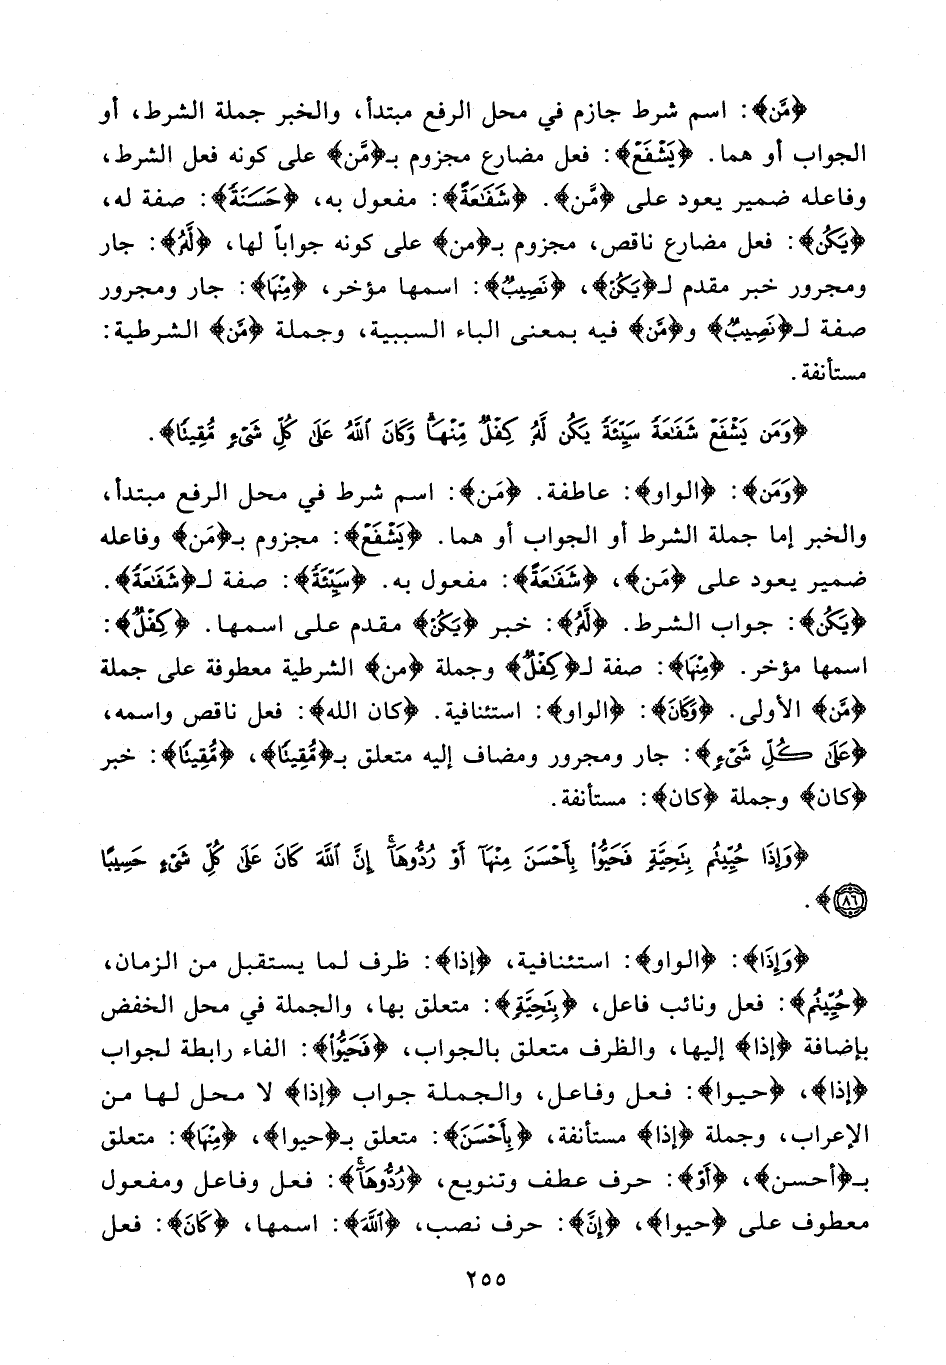 ﴿مَّن﴾: اسم شرط جازم في محل الرفع مبتدأ، والخبر جملة الشرط، أو
الجواب أو هما. ﴿يَشْفَعْ﴾: فعل مضارع مجزوم بـ﴿مَّن﴾ على كونه فعل الشرط،
وفاعله ضمير يعود على ﴿مَّن﴾. ﴿شَفَـٰعَةً﴾: مفعول به، ﴿حَسَنَةً﴾: صفة له،
﴿يَكُن﴾: فعل مضارع ناقص، مجزوم بـ﴿من﴾ على كونه جواباً لها، ﴿لَّهُ﴾: جار
ومجرور خبر مقدم لـ﴿يَكُن﴾، ﴿نَصِيبٌ﴾: اسمها مؤخر، ﴿مِنْهَا﴾: جار ومجرور
صفة لـ﴿نَصِيبٌ﴾ و﴿مَّن﴾ فيه بمعنى الباء السببية، وجملة ﴿مَّن﴾ الشرطية:
مستأنفة.
﴿وَمَن يَشْفَعْ شَفَـٰعَةً سَيِّئَةً يَكُن لَّهُ كِفْلٌ مِّنْهَا ۗ وَكَانَ ٱللَّهُ عَلَىٰ كُلِّ شَىْءٍ مُّقِيتًا﴾.
﴿وَمَن﴾: ﴿الواو﴾: عاطفة. ﴿مَن﴾: اسم شرط في محل الرفع مبتدأ،
والخبر إما جملة الشرط أو الجواب أو هما. ﴿يَشْفَعْ﴾: مجزوم بـ﴿مَن﴾ وفاعله
ضمير يعود على ﴿مَن﴾، ﴿شَفَـٰعَةً﴾: مفعول به. ﴿سَيِّئَةً﴾: صفة لـ﴿شَفَـٰعَةً﴾.
﴿يَكُن﴾: جواب الشرط. ﴿لَّهُ﴾: خبر ﴿يَكُن﴾ مقدم على اسمها. ﴿كِفْلٌ﴾:
اسمها مؤخر. ﴿مِنْهَا﴾: صفة لـ﴿كِفْلٌ﴾ وجملة ﴿من﴾ الشرطية معطوفة على جملة
﴿مَّن﴾ الأولى. ﴿وَكَانَ﴾: ﴿الواو﴾: استئنافية. ﴿كان الله﴾: فعل ناقص واسمه،
﴿عَلَىٰ كُلِّ شَىْءٍ﴾: جار ومجرور ومضاف إليه متعلق بـ﴿مُّقِيتًا﴾، ﴿مُّقِيتًا﴾: خبر
﴿كان﴾ وجملة ﴿كان﴾: مستأنفة.
﴿وَإِذَا حُيِّيتُم بِتَحِيَّةٍ فَحَيُّوا۟ بِأَحْسَنَ مِنْهَآ أَوْ رُدُّوهَآ ۗ إِنَّ ٱللَّهَ كَانَ عَلَىٰ كُلِّ شَىْءٍ حَسِيبًا
٨٦﴾.
﴿وَإِذَا﴾: ﴿الواو﴾: استئنافية، ﴿إذا﴾: ظرف لما يستقبل من الزمان،
﴿حُيِّيتُم﴾: فعل ونائب فاعل، ﴿بِتَحِيَّةٍ﴾: متعلق بها، والجملة في محل الخفض
بإضافة ﴿إذا﴾ إليها، والظرف متعلق بالجواب، ﴿فَحَيُّوا۟﴾: الفاء رابطة لجواب
﴿إذا﴾، ﴿حيوا﴾: فعل وفاعل، والجملة جواب ﴿إذا﴾ لا محل لها من
الإعراب، وجملة ﴿إذا﴾ مستأنفة، ﴿بِأَحْسَنَ﴾: متعلق بـ﴿حيوا﴾، ﴿مِنْهَا﴾: متعلق
بـ﴿أحسن﴾، ﴿أَوْ﴾: حرف عطف وتنويع، ﴿رُدُّوهَآ ۗ﴾: فعل وفاعل ومفعول
معطوف على ﴿حيوا﴾، ﴿إِنَّ﴾: حرف نصب، ﴿ٱللَّهَ﴾: اسمها، ﴿كَانَ﴾: فعل
٢٥٥